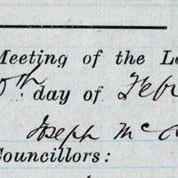 Meeting of the L
th day of Feb
Joseph Mc
Councillors: